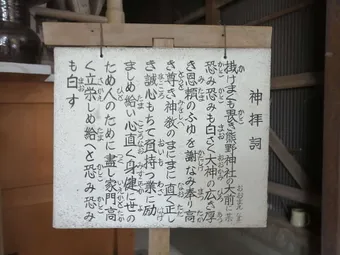 神拝詞
掛けまくも畏き熊野神社の大前
恐み恐みも白さく大神の広き厚
き恩頼のふゆを謝なみ奉り高
き尊き神教のまにまに直く正し
き誠心もちて負持つ業に励
ましめ給い心直く身健に世の
ため人のために盡し家門高
く立栄しめ給へと恐み恐み
も白す